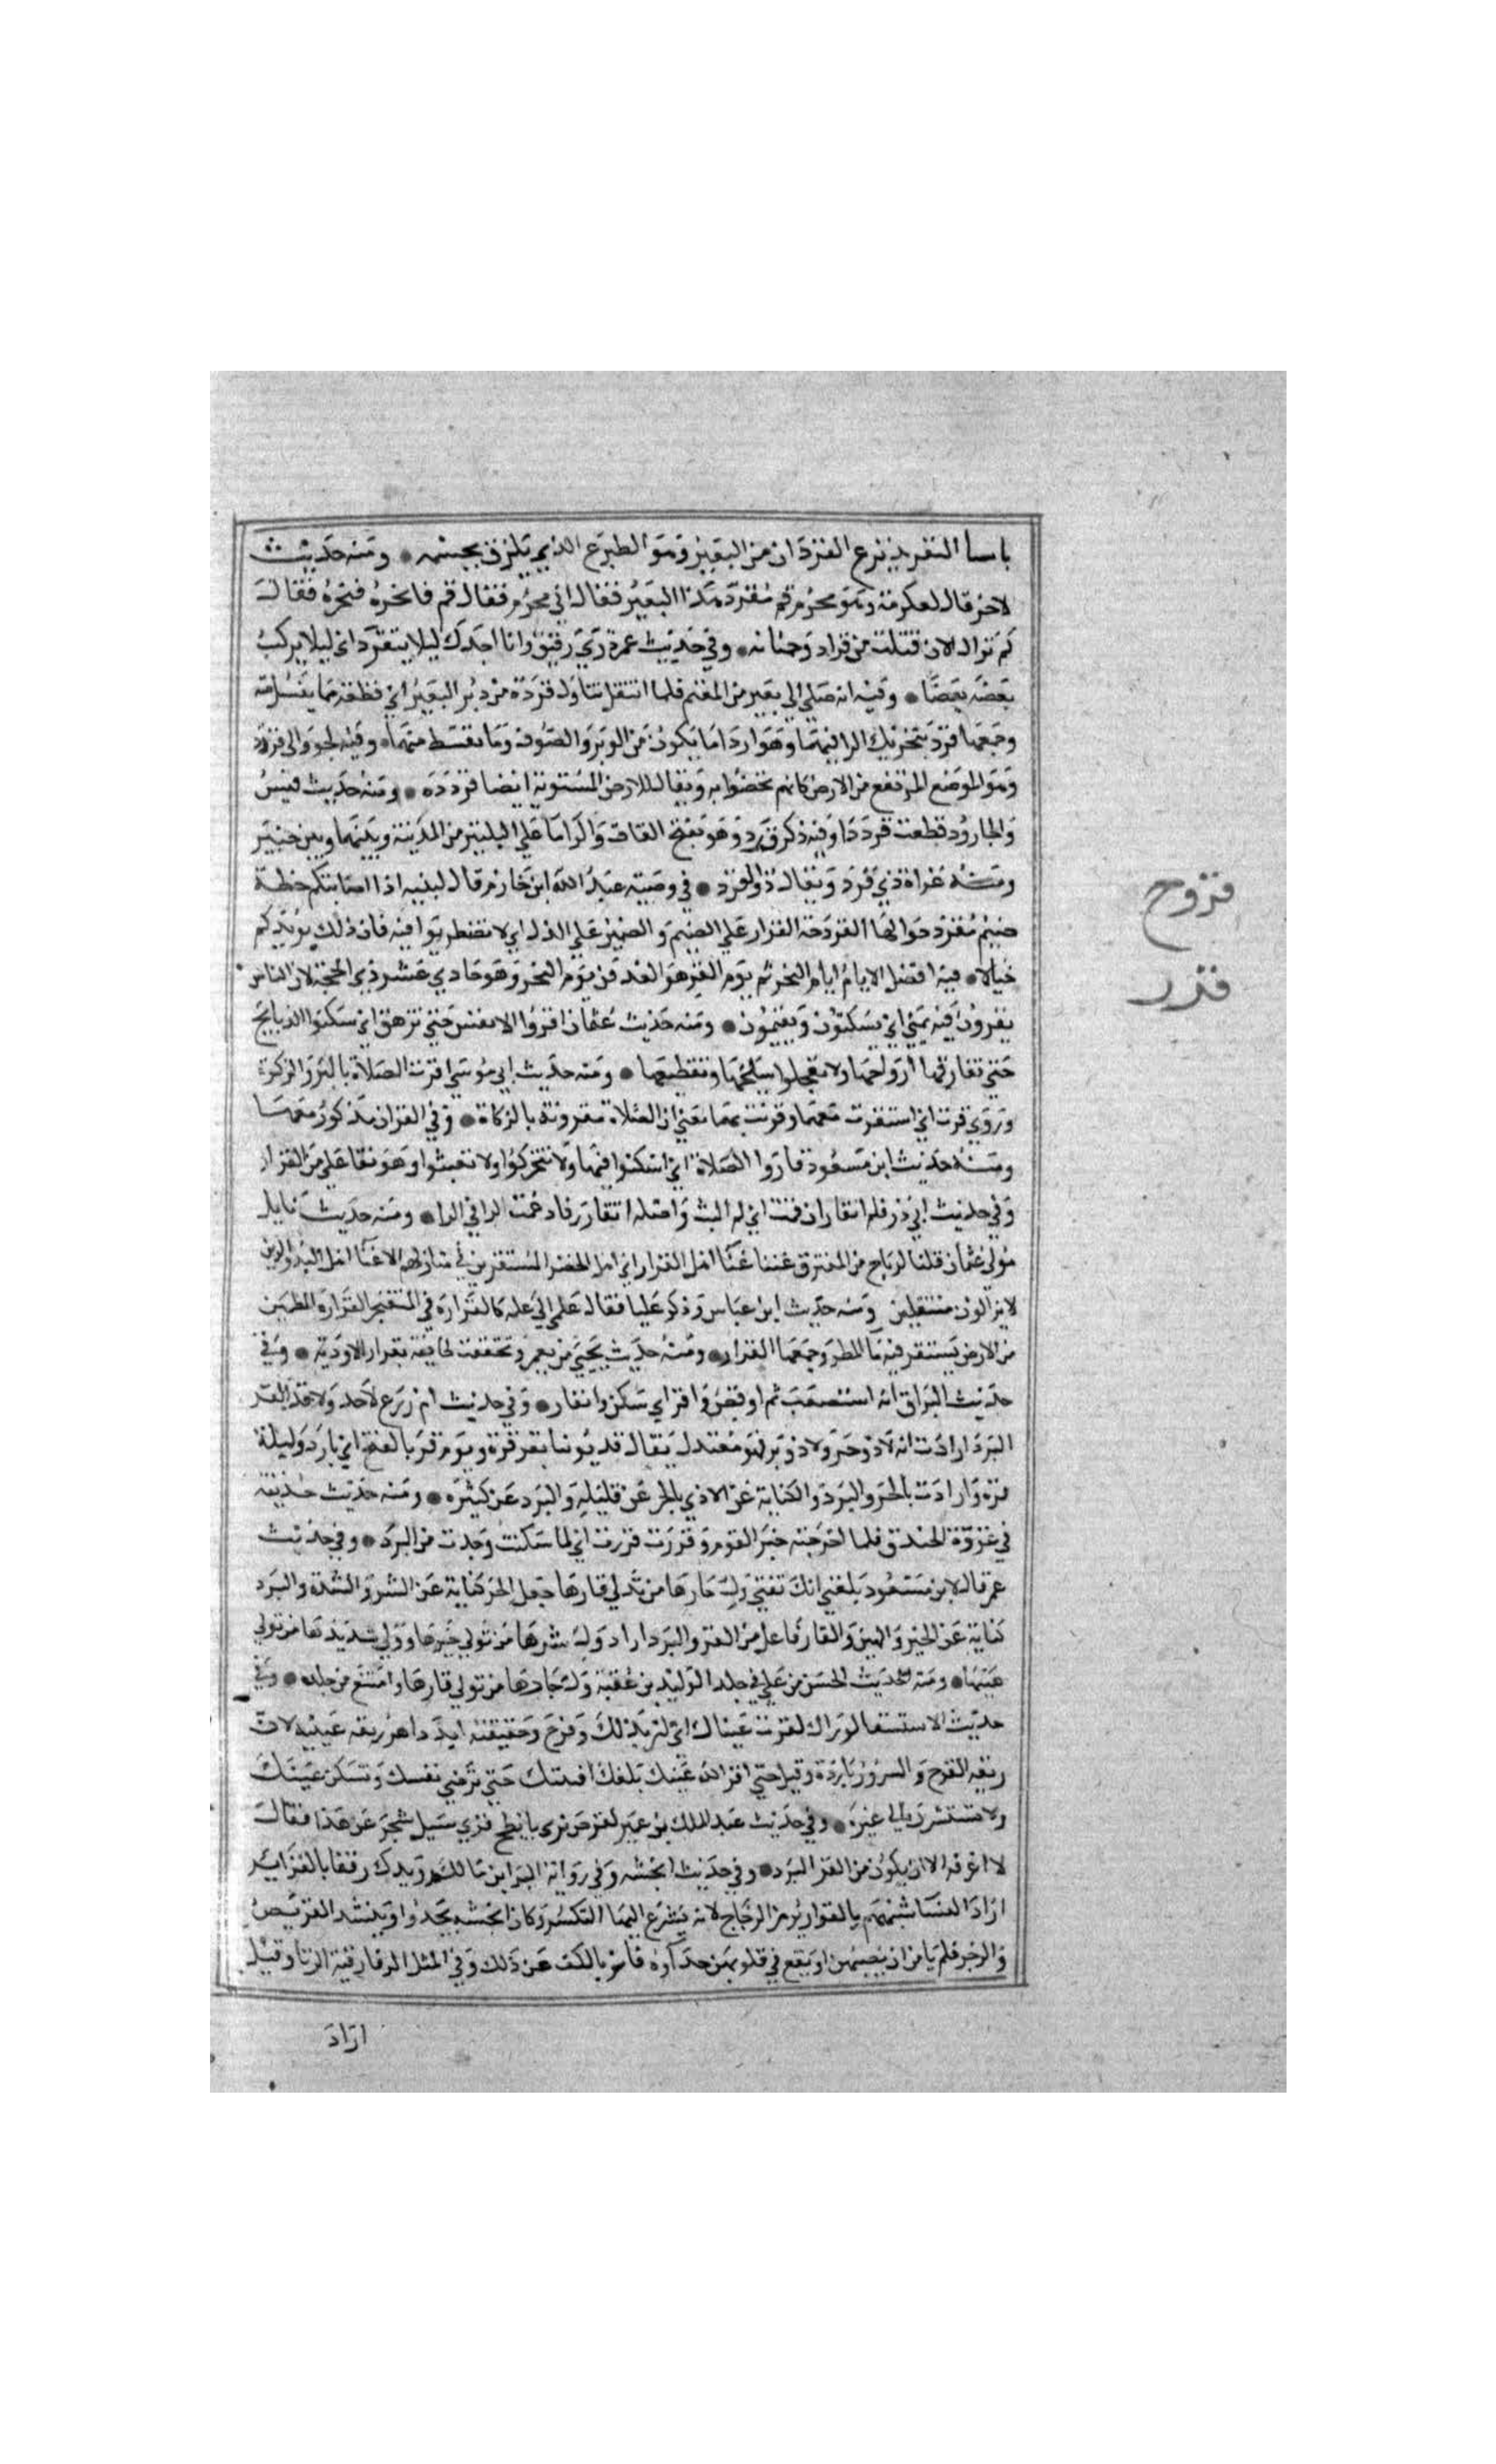 باسا التقريد نزع القردان من البعير وهو الطبوع الذي يلزق بجسمه ● ومنه حديث
لاخر قال لعكرمة وهو محرم قم فقرد هذا البعير فقال اني محرم فقال قم فانحره فنحره فقال
كم تراك الان قتلت من قراد وحمنانه ● وفي حديث عمر ذري رقيق وانا احدك ليلا يتقرد اي ليلا يركب
بعضه بعضا ● وفيه انه صلي الي بعير من المغنم فلما انتقل تناول قردة من دبر البعير اي قطعة مما ينسل منه
وجمعها قرد بتحريك الرا فيهما وهو اردا ما يكون من الوبر والصوف وما تقسط منهما ● وفيه لجوا الي قردد
وهو الموضع المرتفع من الارض كانهم تحصنوا به ويقال للارض المستوية ايضا قرددة ● ومنه حديث قيس
والجارود قطعت قرددا وفيه ذكر قرد وهو بفتح القاف والرا ما علي البلتين من المدينة وبينهما وبين خيبر
ومنه غزاة ذي قرد ويقال ذو القرد ● في وصية عبد الله ابن خازم قال لبنيه اذا اصابتكم خطة
ضيم فقردحوا لها القردحة القرار علي الضيم والصبر علي الذل اي لا تضطربوا فيه فان ذلك يزيدكم
خبالا ● فيه افضل الايام ايام النحر ثم يوم القر هو الغد من يوم النحر وهو حادي عشر ذي الحجة لان الناس
يقرون فيه بمني اي يسكنون ويقيمون ● ومنه حديث عثمان اقروا الانفس حتي تزهق اي سكنوا الذبايح
حتي تفارقها ارواحها ولا تعجلوا بسلخها وتقطيعها ● ومنه حديث ابي موسي اقرت الصلاة بالبر والزكوة
وروي قرت اي استقرت معهما وقرنت بهما يعني ان الصلاة مقرونة بالزكاة ● وفي القران مذكور معهما
ومنه حديث ابن مسعود قاروا الصلاة اي اسكنوا فيها ولا تتحركوا ولا تعبثوا وهو تفاعل من القرار
وفي حديث ابي ذر فلم اتقار ان قمت اي لم البث واصله اتقارر فادغمت الرا في الرا ● ومنه حديث نايل
مولي عثمان قلنا لرباح من المغترق غننا غنا اهل القرار اي اهل الحضر المستقرين في منازلهم لا غنا اهل البدو الذين
لا يزالون منتقلين ومنه حديث ابن عباس وذكر عليا فقال علمي الي علمه كالقرارة في المثعنجر القرارة المطمين
من الارض يستقر فيه ما المطر وجمعها القرار ● ومنه حديث يحيي بن يعمر وتحققت لحايفة بقرار الاودية ● وفي
حديث البراق انه استصعب ثم ارفض واقر اي سكن وانقاد ● وفي حديث ام زرع لا حر ولا قر القر
البرد ارادت انه لا ذو حر ولا ذو برد فهو معتدل يقال قد يومنا يقر قرة ويوم قر بالفتح اي بارد وليلة
قرة وارادت بالحر والبرد والكناية عن الاذي بالحر عن قليله والبرد عن كثيره ● ومنه حديث حذيفة
في غزوة الخندق فلما اخبرته خبر القوم وقررت قررت اي لما سكنت وجدت من البرد ● وفي حديث
عمر قال لابن مسعود بلغني انك تفتي ول حارها من تولي قارها جعل الحر كناية عن الشر والشدة والبرد
كناية عن الخير والهين والقار فاعل من القر والبرد اراد ول شرها من تولي خيرها وولي شديدتها من تولي
هينها ● ومنه الحديث الحسن بن علي في جلد الوليد بن عقبة ول حارها من تولي قارها وامتنع من جلده ● وفي
حديث الاستسقا لو راك لقرت عيناك اي لسر بذلك وفرح وحقيقته ابرد الله ريقه عينيه لان
ريقه الفرح والسرور باردة وقيل حتي اقر الله عينك بلغك امنيتك حتي ترضي نفسك وتسكن عينك
ولا تستشرف الي غيره ● وفي حديث عبد الملك بن عمير لقرص بري بابطح قري سيل شجر عن هذا فقال
لا اعرفه الا ان يكون من القر البرد ● وفي حديث انجشه وفي رواية البرا بن مالك رويدك رفقا بالقوارير
اراد النسا شبههم بالقوارير من الزجاج لانه يسرع اليها التكسر وكان انجشه يحدوا وينشد القريض
والرجز فلم يامن ان يصيبهن او يقع في قلوبهن حداوه فامر بالكف عن ذلك وفي المثل الغنا رقية الزنا وقيل
اراد
قردح
قرر